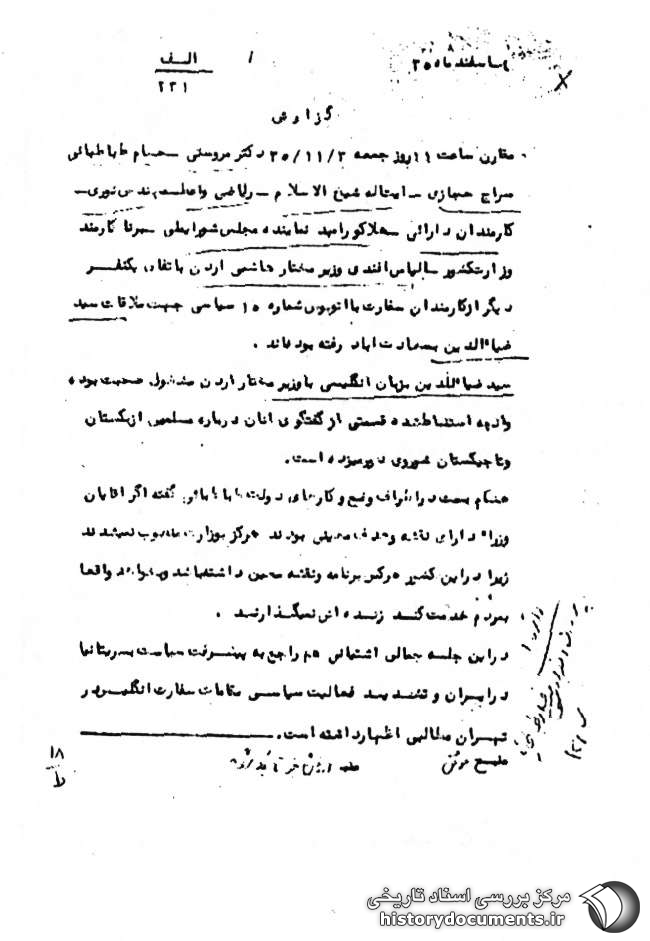 الف
۲۲۱
گزارش
مقارن ساعت ۱۱ روز جمعه ۳۵/۱۱/۳ دکتر مروستی - حسام طباطبائی
سراج حجازی - امتاله شیخ الاسلام - ریاضی واعظ - مهندس نوری -
کارمندان دارائی - هلاکو رامبد نماینده مجلس شورایملی - کارمند
وزارتکشور - الیاس افندی وزیر مختار هاشمی اردن باتفاق یکنفر
دیگر از کارمندان سفارت با اتوبوس شماره ۱۵ سیاسی جهت ملاقات سید
ضیاالدین بسعادت اباد رفته بودند .
سید ضیاالدین بزبان انگلیسی با وزیر مختار اردن مشغول صحبت بوده
وانچه استنباط شده قسمتی از گفتگوی انان درباره مسلمین ازبکستان
وتاجیکستان شوروی دورمیزده است.
هنگام بحث در اطراف وضع و کارهای دولت گفته اگر اقایان
وزراء دارای نقشه وهدف معینی بودند هرگز بوزارت منصوب نمیشدند
زیرا در این کشور هرکس برنامه ونقشه معین داشته باشد وبخواهد واقعا
بمردم خدمت کند زنده اش نمیگذارند .
در این جلسه جمالی اشتیانی هم راجع به پیشرفت سیاست بریتانیا
در ایران و تشدید فعالیت سیاسی مقامات سفارت انگلیس در
تهران مطالبی اظهار داشته است.
منبع موثق
۱۸
ط
مرکز بررسی اسناد تاریخی
historydocuments.ir